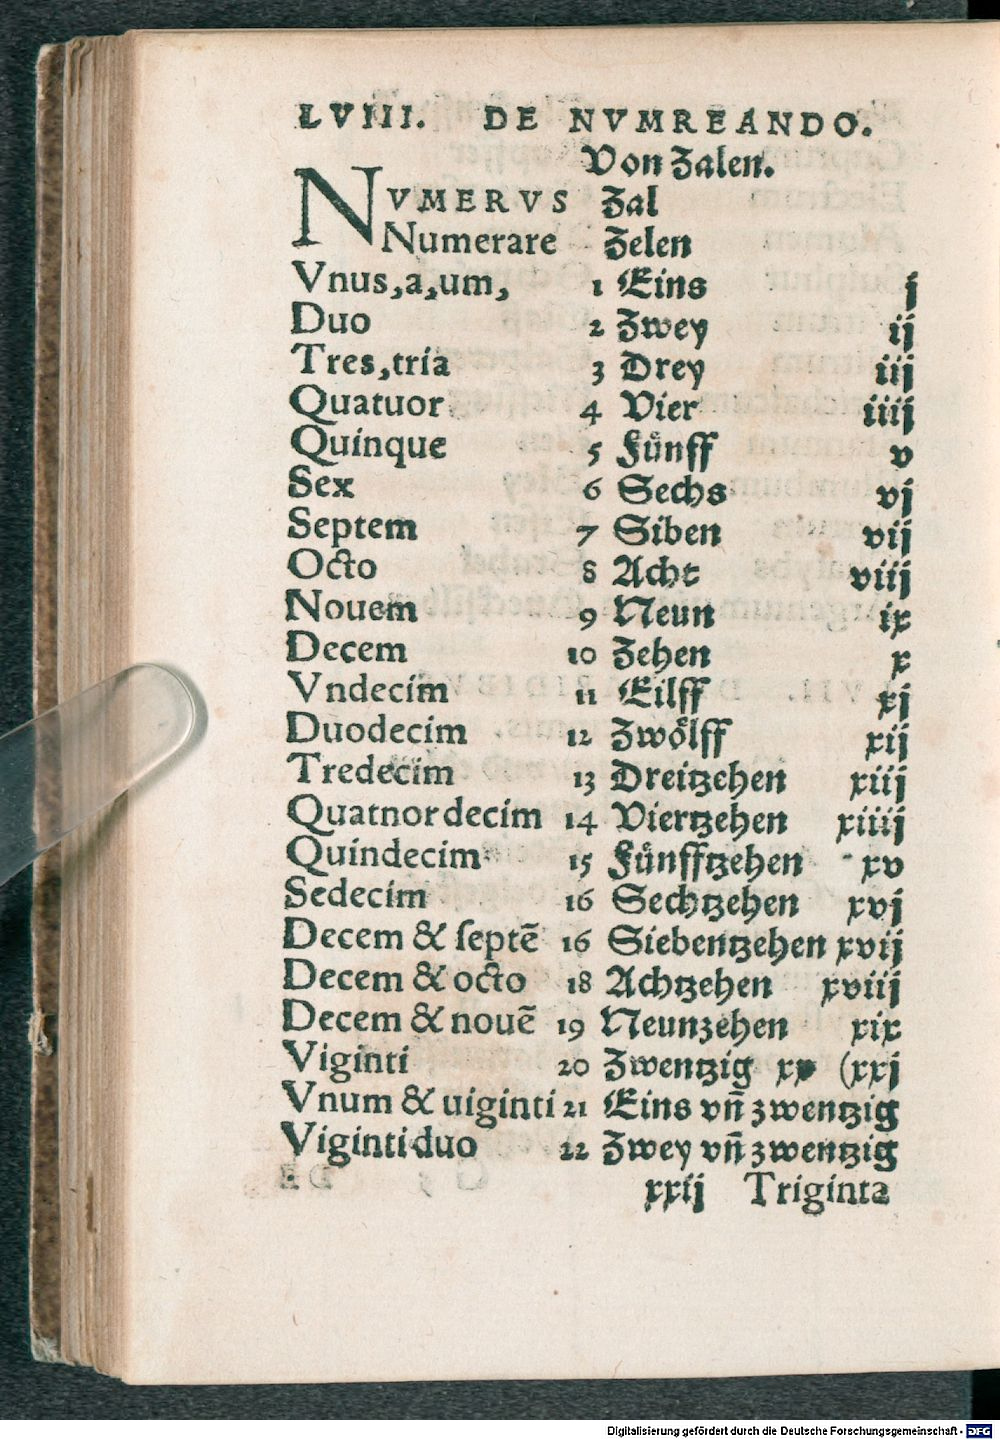 LVIII. DE NVMREANDO.
Von Zalen.
NVMERVS Zal
Numerare Zelen
Vnus,a,um, 1 Eins j
Duo 2 Zwey ij
Tres,tria 3 Drey iij
Quatuor 4 Vier iiij
Quinque 5 Fünff v
Sex 6 Sechs vj
Septem 7 Siben vij
Octo 8 Acht viij
Nouem 9 Neun ix
Decem 10 Zehen x
Vndecim 11 Eilff xj
Duodecim 12 Zwölff xij
Tredecim 13 Dreitzehen xiij
Quatnordecim 14 Viertzehen xiiij
Quindecim 15 Fünfftzehen xv
Sedecim 16 Sechtzehen xvj
Decem & ſeptē 16 Siebentzehen xvij
Decem & octo 18 Achtzehen xviij
Decem & nouē 19 Neunzehen xix
Viginti 20 Zwentzig xx (xxj
Vnum & uiginti 21 Eins vn̄ zwentzig
Viginti duo 22 Zwey vn̄ zwentzig
xxij Triginta
Digitalisierung gefördert durch die Deutsche Forschungsgemeinschaft - DFG